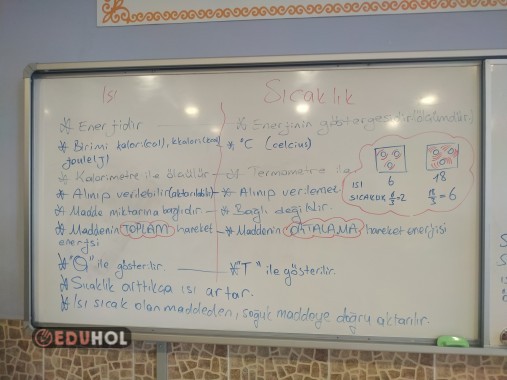 Isı
Sıcaklık
* Enerjidir — * Enerjinin göstergesidir (ölçümdür)
* Birimi kalori (cal), kkalori (kcal) * °C (celcius)
joule (J)
* Kalorimetre ile ölçülür — * Termometre ile
* Alınıp verilebilir (aktarılabilir) — * Alınıp verilemez
* Madde miktarına bağlıdır — * Bağlı değildir.
* Maddenin TOPLAM hareket — * Maddenin ORTALAMA hareket enerjisi
enerjisi
* "Q" ile gösterilir. — * "T" ile gösterilir.
* Sıcaklık arttıkça ısı artar.
* Isı sıcak olan maddeden, soğuk maddeye doğru aktarılır.
ISI 6 18
SICAKLIK 6/3=2 18/3=6
EDUHOL